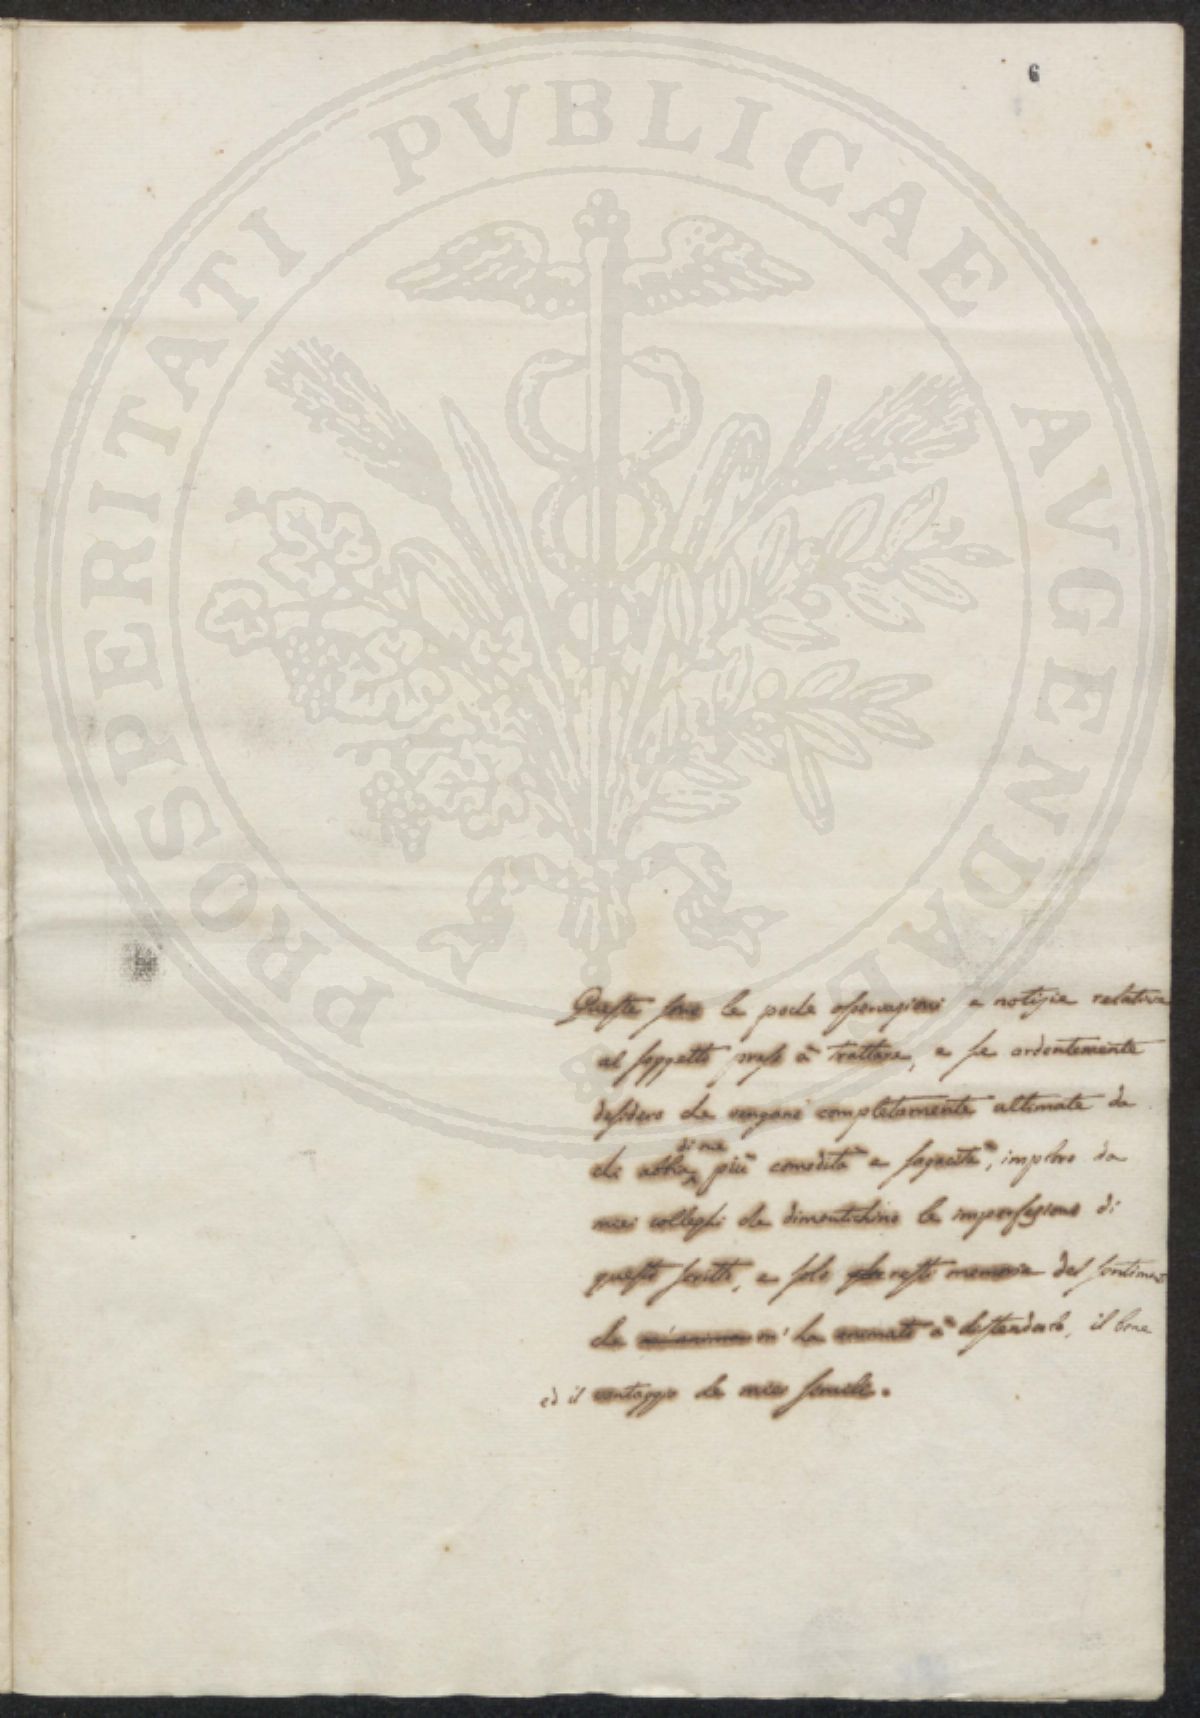 6
PROSPERITATI PVBLICAE AVGENDAE
Queste sono le poche osservazioni e notizie relative
al soggetto preso à trattare, e se ardentemente
desidero che vengano completamente ultimate da
chi abbia di me più comodità e sagacità, imploro da
miei colleghi che dimentichino le imperfezione di
questo scritto, e solo resti memoria del sentimen
che m' ha animato à distenderlo, il bene
ed il vantaggio de miei simili.